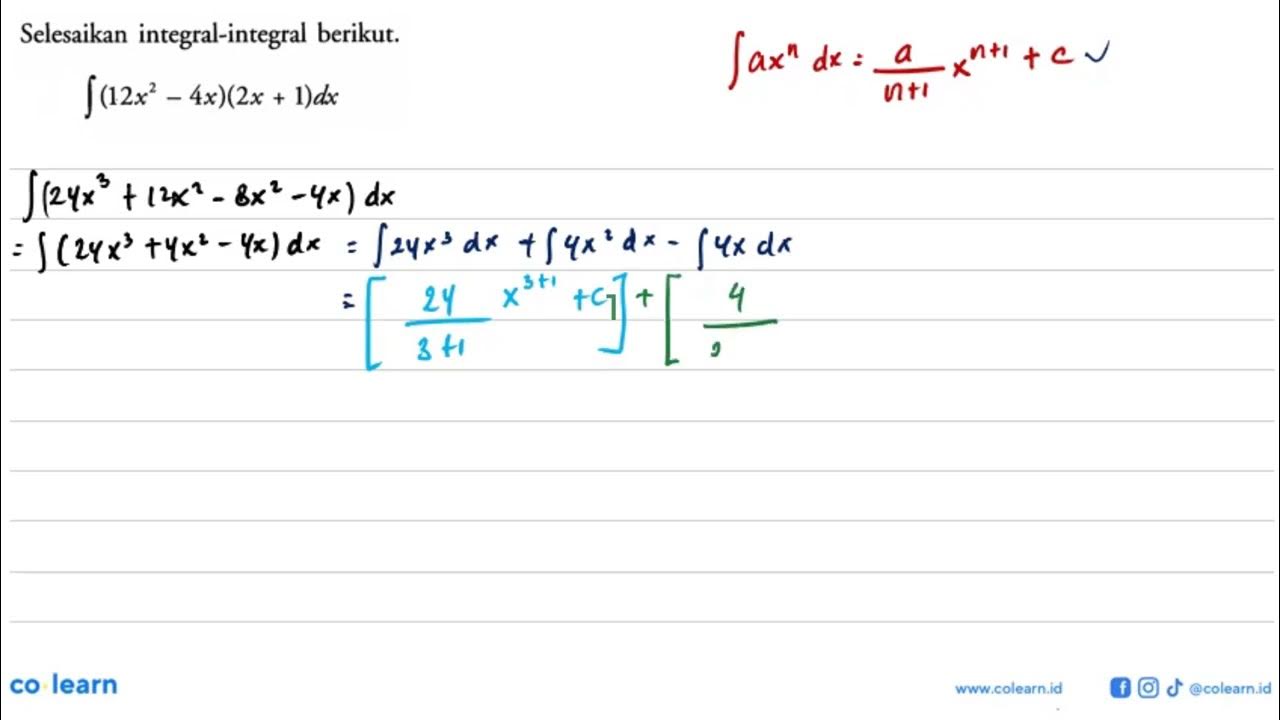 Selesaikan integral-integral berikut.
∫(12x² – 4x)(2x + 1)dx
∫axⁿ dx = a/(n+1) xⁿ⁺¹ + c ✓
∫(24x³ + 12x² - 8x² - 4x) dx
= ∫(24x³ + 4x² - 4x) dx = ∫24x³ dx + ∫4x² dx - ∫4x dx
= [ 24/(3+1) x³⁺¹ + C₁ ] + [ 4
co learn
www.colearn.id
@colearn.id